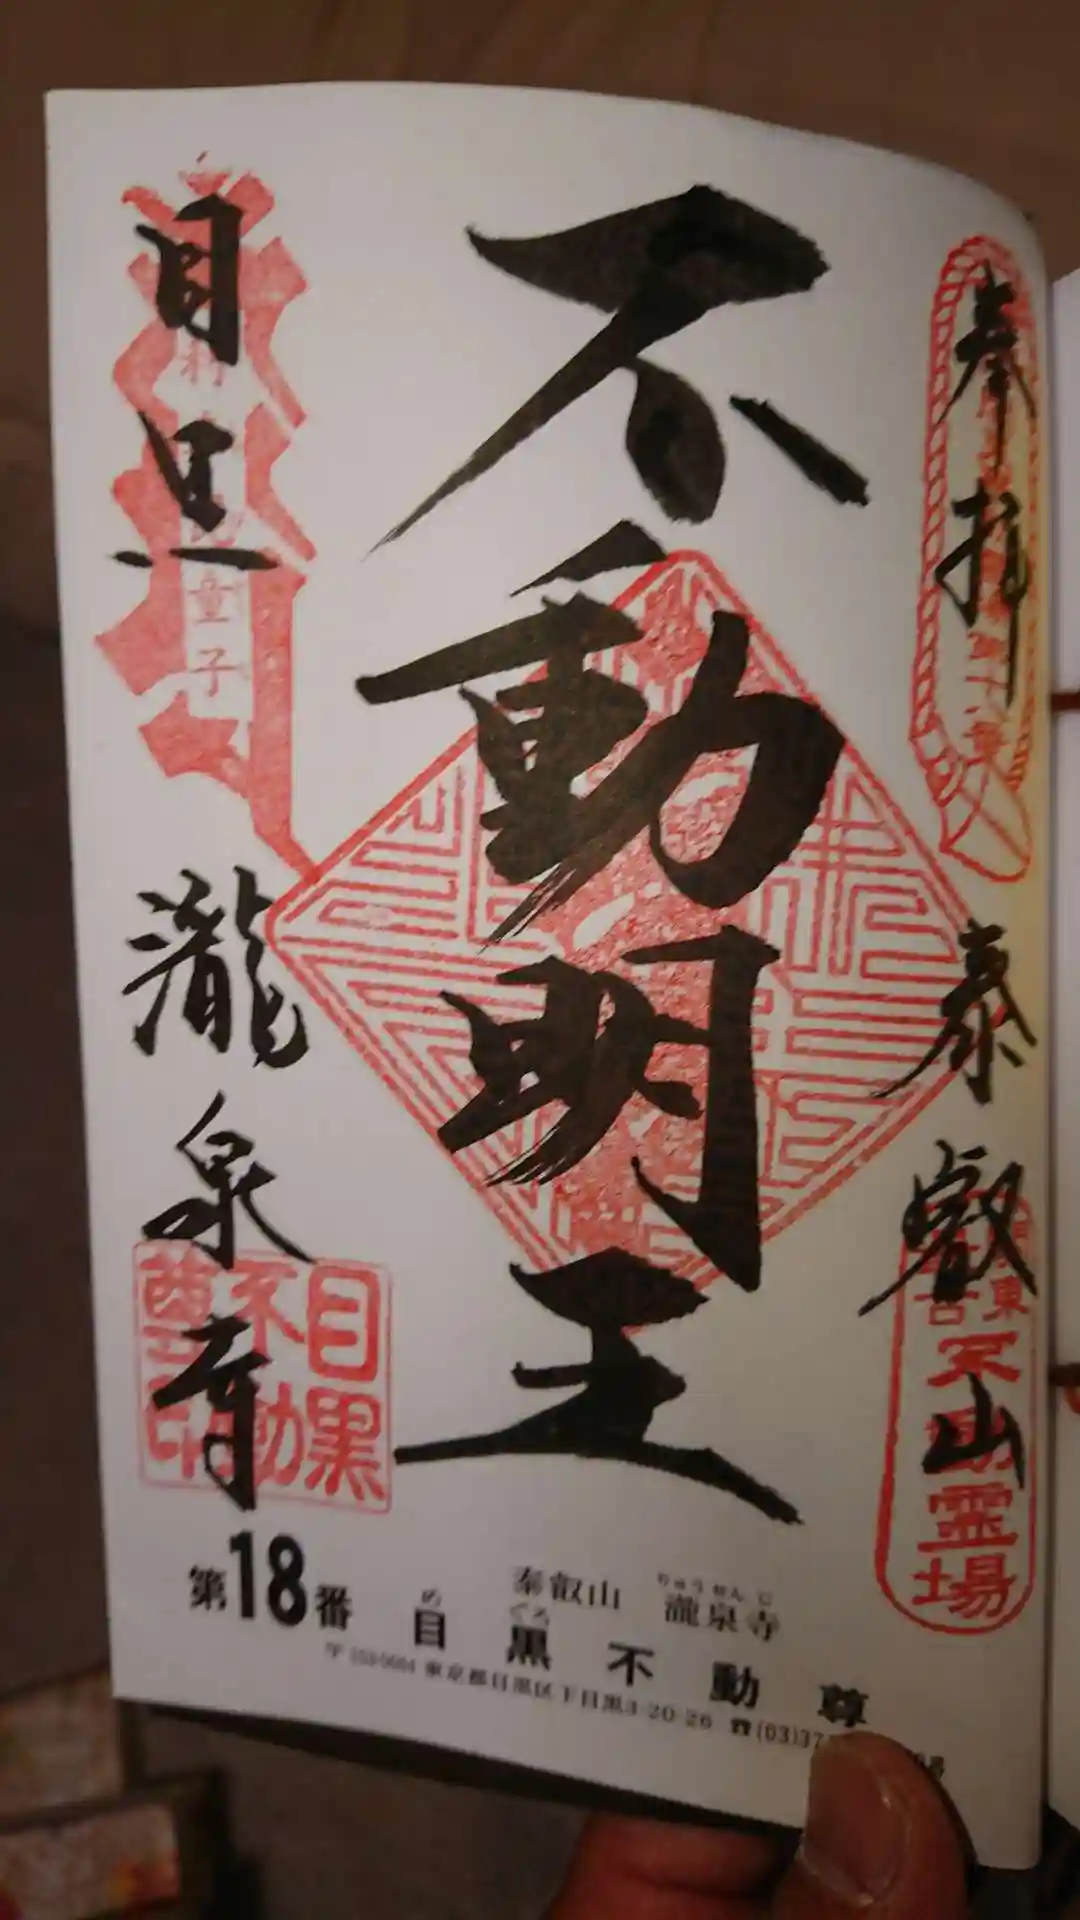 奉拝
泰叡山
不動明王
目黒
瀧泉寺
童子
目黒
不動
尊印
東
霊場
第18番
泰叡山 瀧泉寺
りゅうせんじ
めぐろ
目黒不動尊
東京都目黒区下目黒3-20-26 ☎(03)37